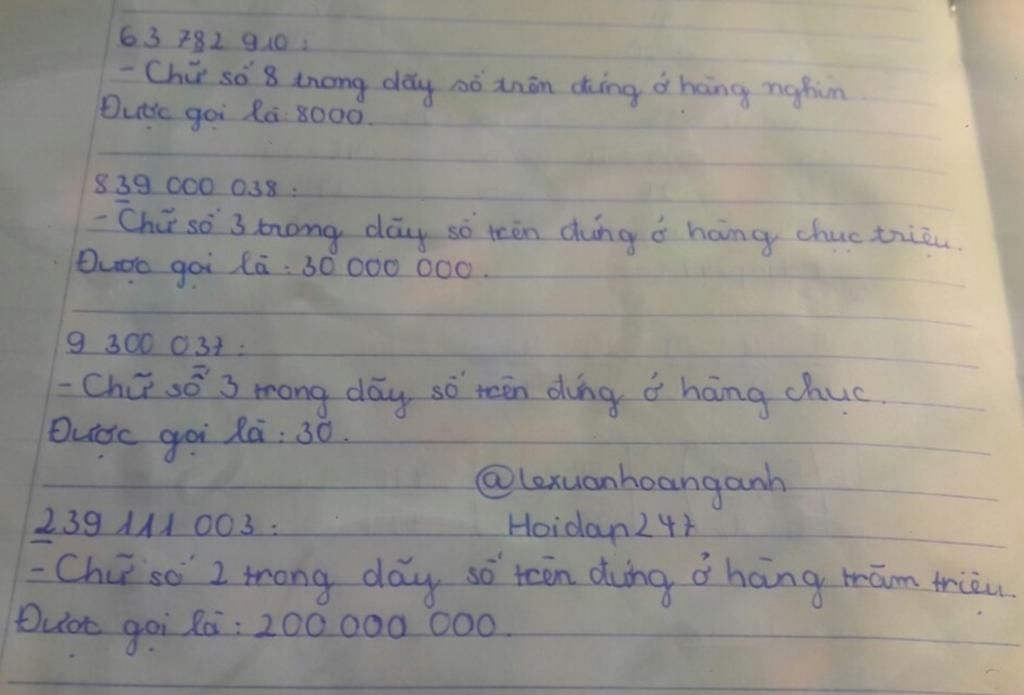 63 782 910 :
- Chữ số 8 trong dãy số trên đứng ở hàng nghìn
Được gọi là: 8000.
839 000 038 :
- Chữ số 3 trong dãy số trên đứng ở hàng chục triệu.
Được gọi là : 30 000 000.
9 300 037 :
- Chữ số 3 trong dãy số trên đứng ở hàng chục.
Được gọi là : 30.
@lexuanhoanganh
239 111 003 :
Hoidap247
- Chữ số 2 trong dãy số trên đứng ở hàng trăm triệu.
Được gọi là : 200 000 000.